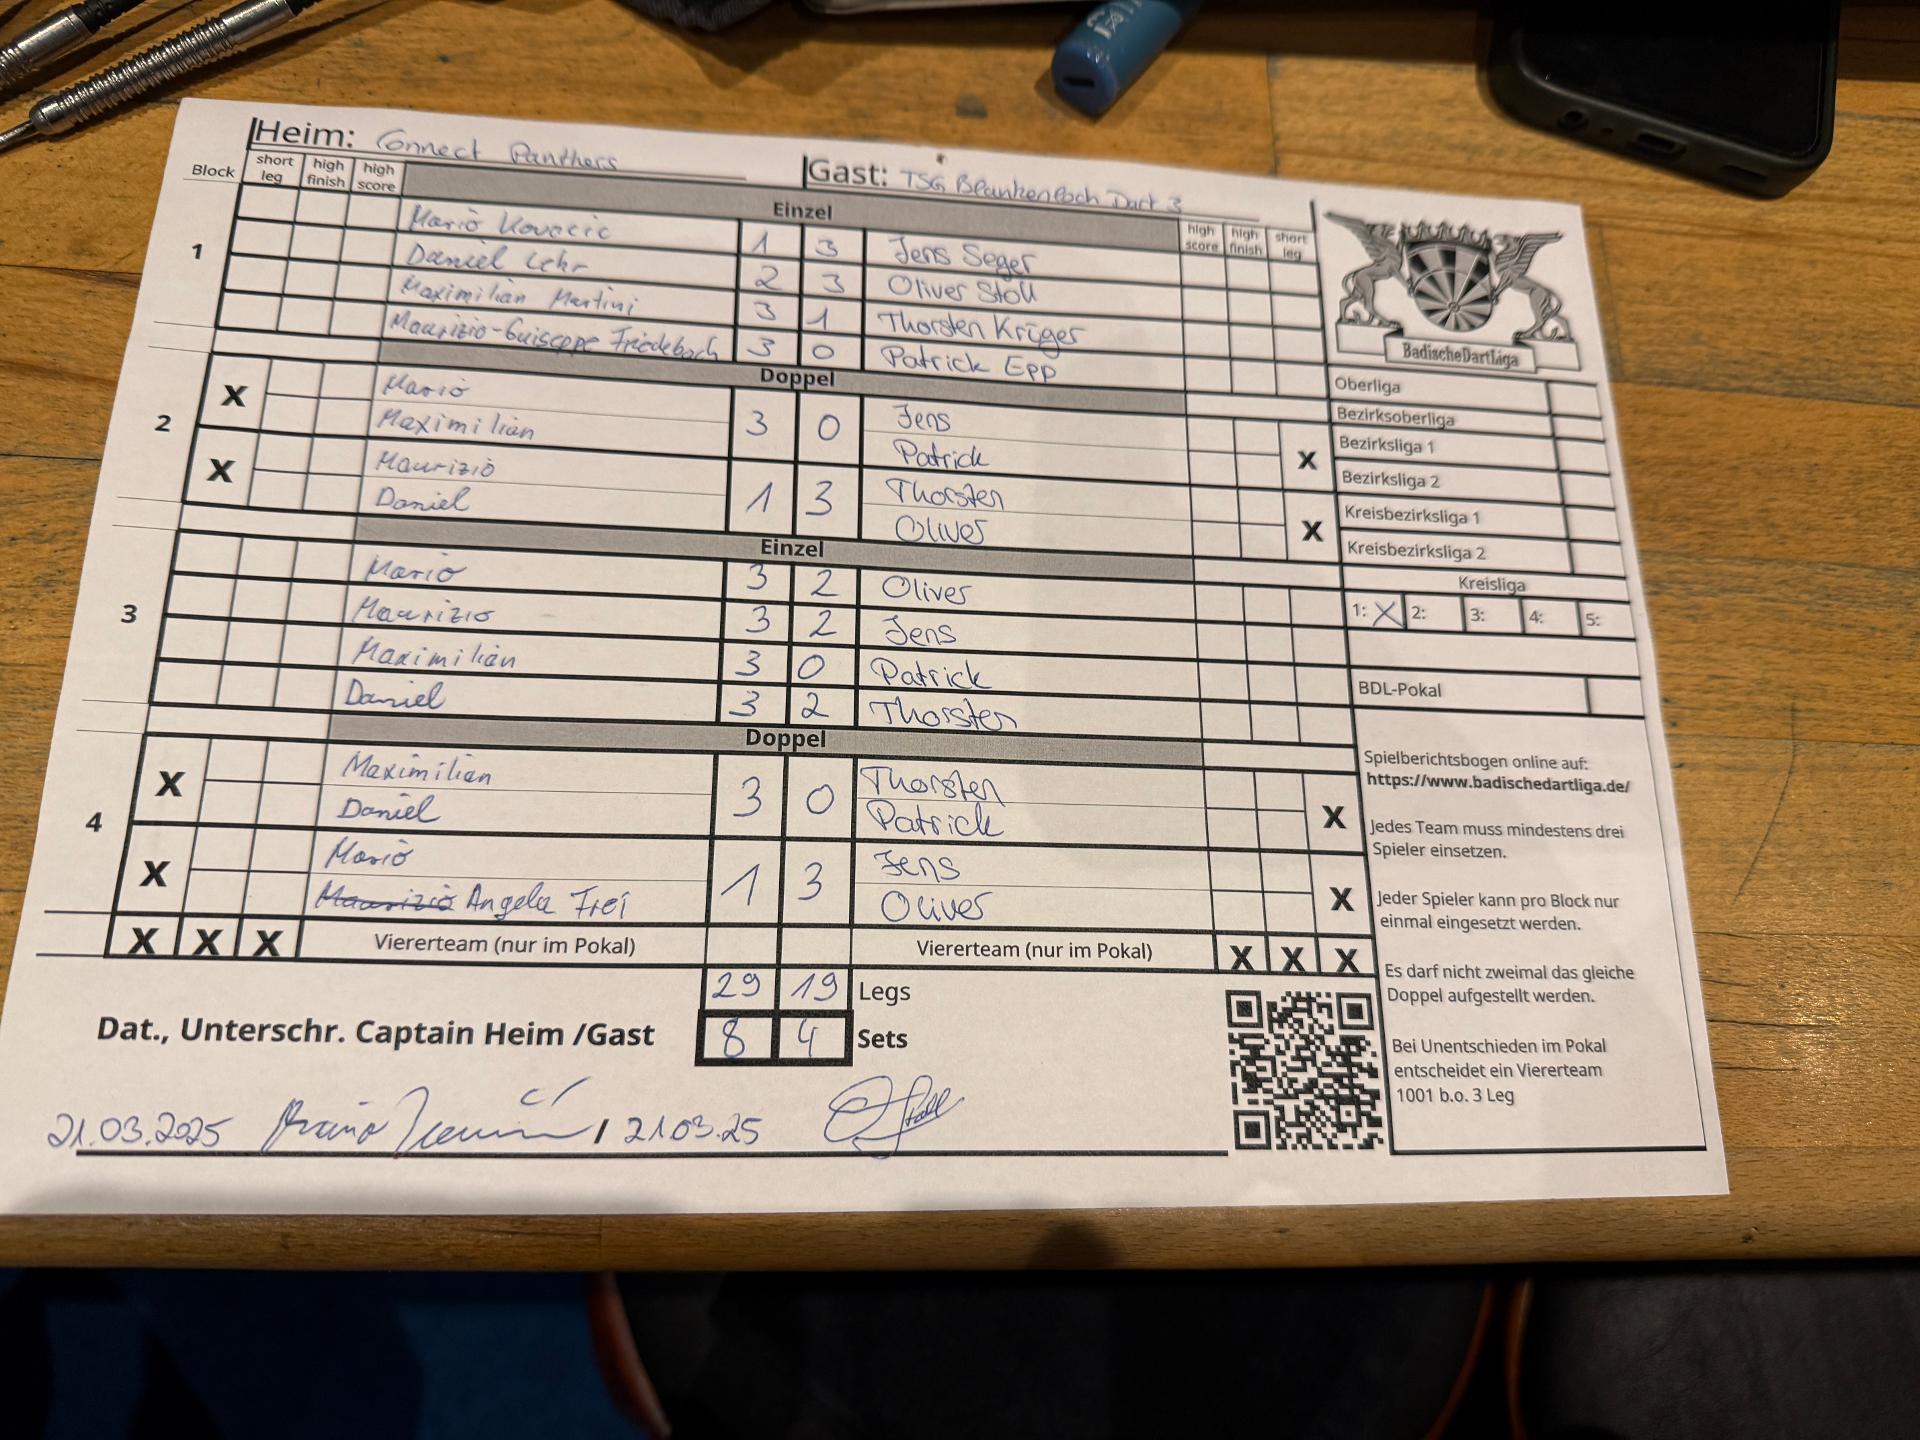 Heim: Connect Panthers Gast: TSG Blankenloch Dart 3
Block short leg high finish high score Einzel high score high finish short leg
1
Mario Kovacic 1 3 Jens Seger
Daniel Lehr 2 3 Oliver Stoll
Maximilian Martini 3 1 Thorsten Krüger
Maurizio-Guiseppe Friedebach 3 0 Patrick Epp
Doppel
2
X Mario 3 0 Jens X
Maximilian Patrick
X Maurizio 1 3 Thorsten X
Daniel Oliver
Einzel
3
Mario 3 2 Oliver
Maurizio 3 2 Jens
Maximilian 3 0 Patrick
Daniel 3 2 Thorsten
Doppel
4
X Maximilian 3 0 Thorsten X
Daniel Patrick
X Mario 1 3 Jens X
Maurizio Angela Frei Oliver
X X X Viererteam (nur im Pokal) Viererteam (nur im Pokal) X X X
29 19 Legs
8 4 Sets
Dat., Unterschr. Captain Heim /Gast
21.03.2025 / 21.03.25
BadischeDartLiga
Oberliga
Bezirksoberliga
Bezirksliga 1
Bezirksliga 2
Kreisbezirksliga 1
Kreisbezirksliga 2
Kreisliga
1: X 2: 3: 4: 5:
BDL-Pokal
Spielberichtsbogen online auf:
https://www.badischedartliga.de/
Jedes Team muss mindestens drei
Spieler einsetzen.
Jeder Spieler kann pro Block nur
einmal eingesetzt werden.
Es darf nicht zweimal das gleiche
Doppel aufgestellt werden.
Bei Unentschieden im Pokal
entscheidet ein Viererteam
1001 b.o. 3 Leg